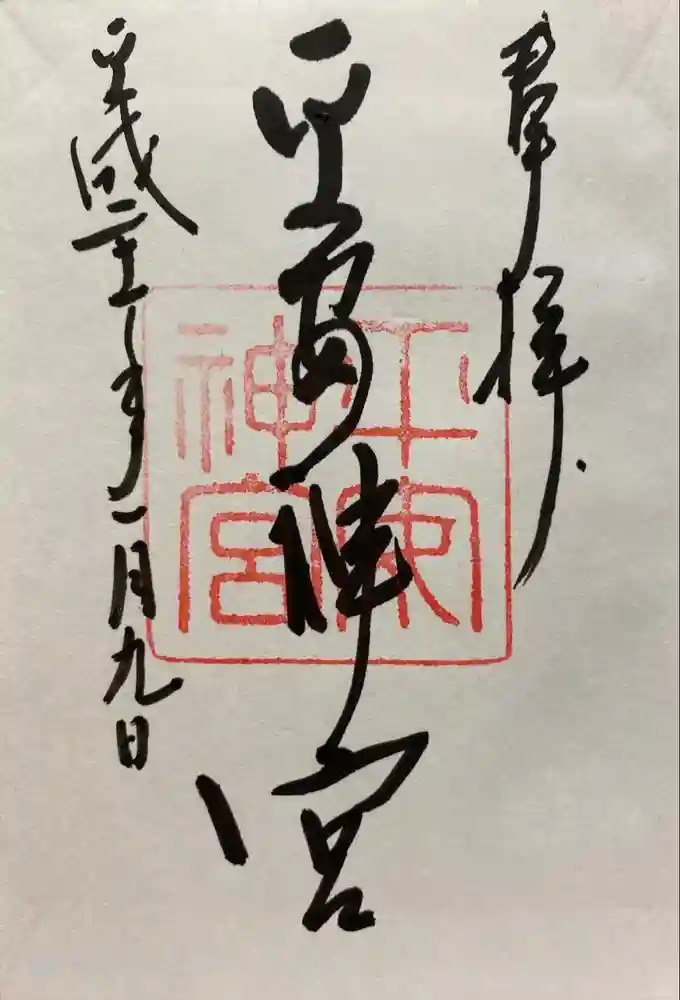 奉拝
平安神宮
平成二十一年一月九日
平安
神宮